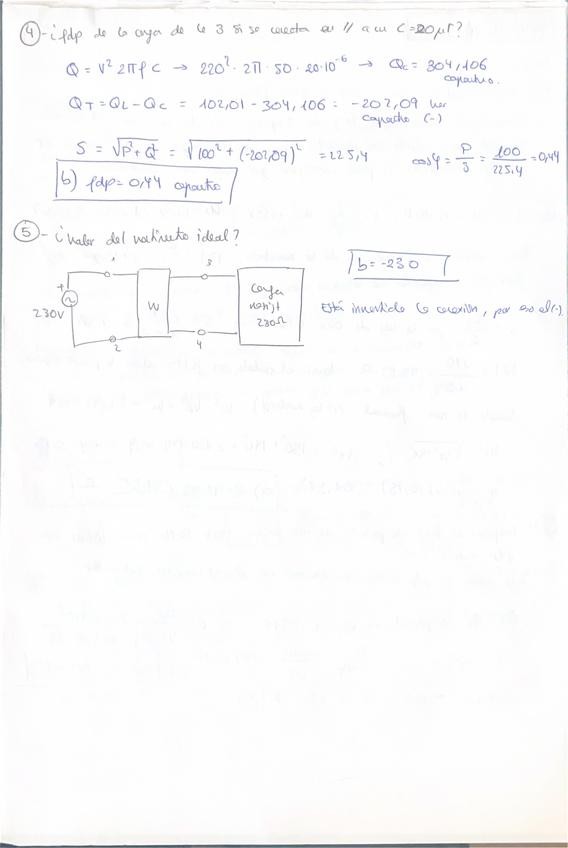 ④-¿fdp de la carga de la 3 si se conecta en // a un C=20μF?
Q = V² 2πf C → 220² · 2π · 50 · 20·10⁻⁶ → Qc = 304,106
capacitivo.
QT = QL - QC = 102,01 - 304,106 = -202,09 Var
capacitivo (-)
S = √P²+Q² = √100² + (-202,09)² = 225,4 cosφ = P/S = 100/225.4 = 0,44
b) fdp = 0,44 capacitivo
⑤-¿valor del vatímetro ideal?
b = -230
Está invertida la conexión, por eso el (-).
1 3
+
230V
W
carga
resist
230Ω
2 4